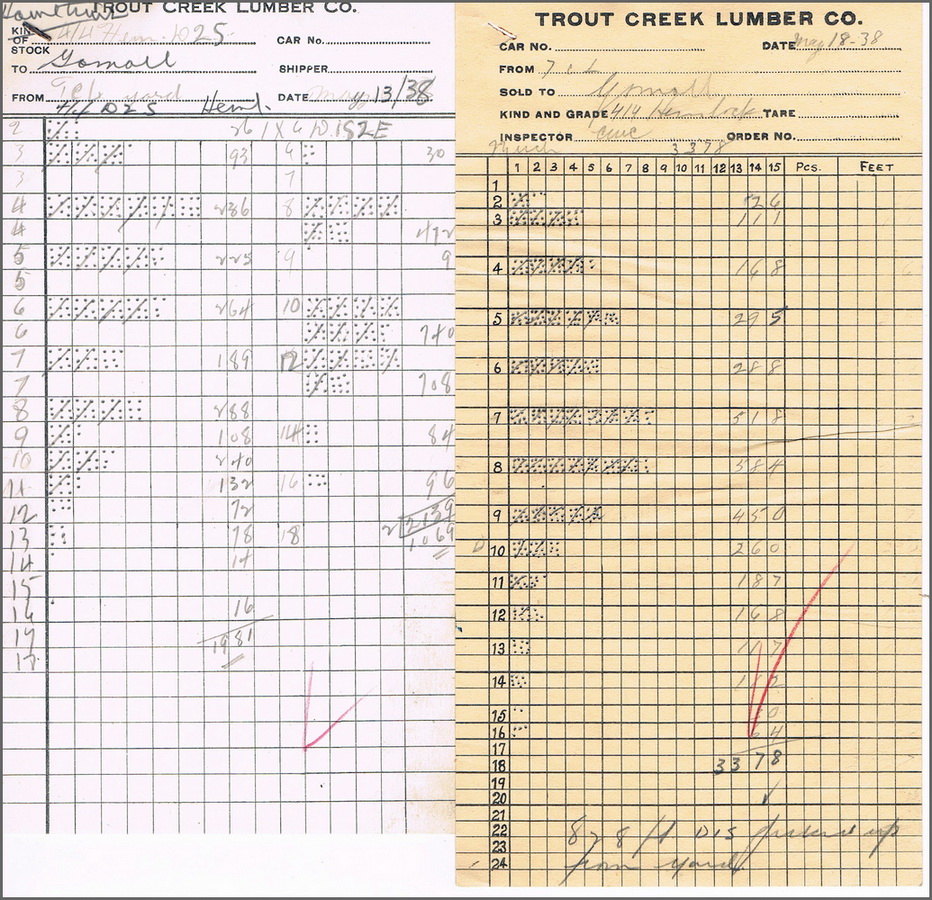 TROUT CREEK LUMBER CO.
KIND OF STOCK 4/4 Hem. D2S
CAR No.
TO Gomoll
SHIPPER
FROM yard
DATE May 13/38
4/4 D2S Heml.
2 26 1 X 6 D.1S2E
3 93 6 30
3 7
4 236 8
4 472
5 225 9 9
5
6 264 10
6 740
7 189 12
7 708
8 288
9 108 14 84
10 240
11 132 16 96
12 72 2139
13 78 18 2 1069
14 14
15
16 16
17 1981
17
TROUT CREEK LUMBER CO.
CAR NO. DATE May 18-38
FROM
SOLD TO Gomoll
KIND AND GRADE 4/4 Hemlock TARE
INSPECTOR ORDER NO.
3378
1 2 3 4 5 6 7 8 9 10 11 12 13 14 15 Pcs. FEET
1
2 26
3 111
4 168
5 295
6 288
7 518
8 584
9 450
10 260
11 187
12 168
13 117
14 112
15 30
16 64
17
18 3378
19
20
21
22 828 ft D1S picked up
23
24 from yard